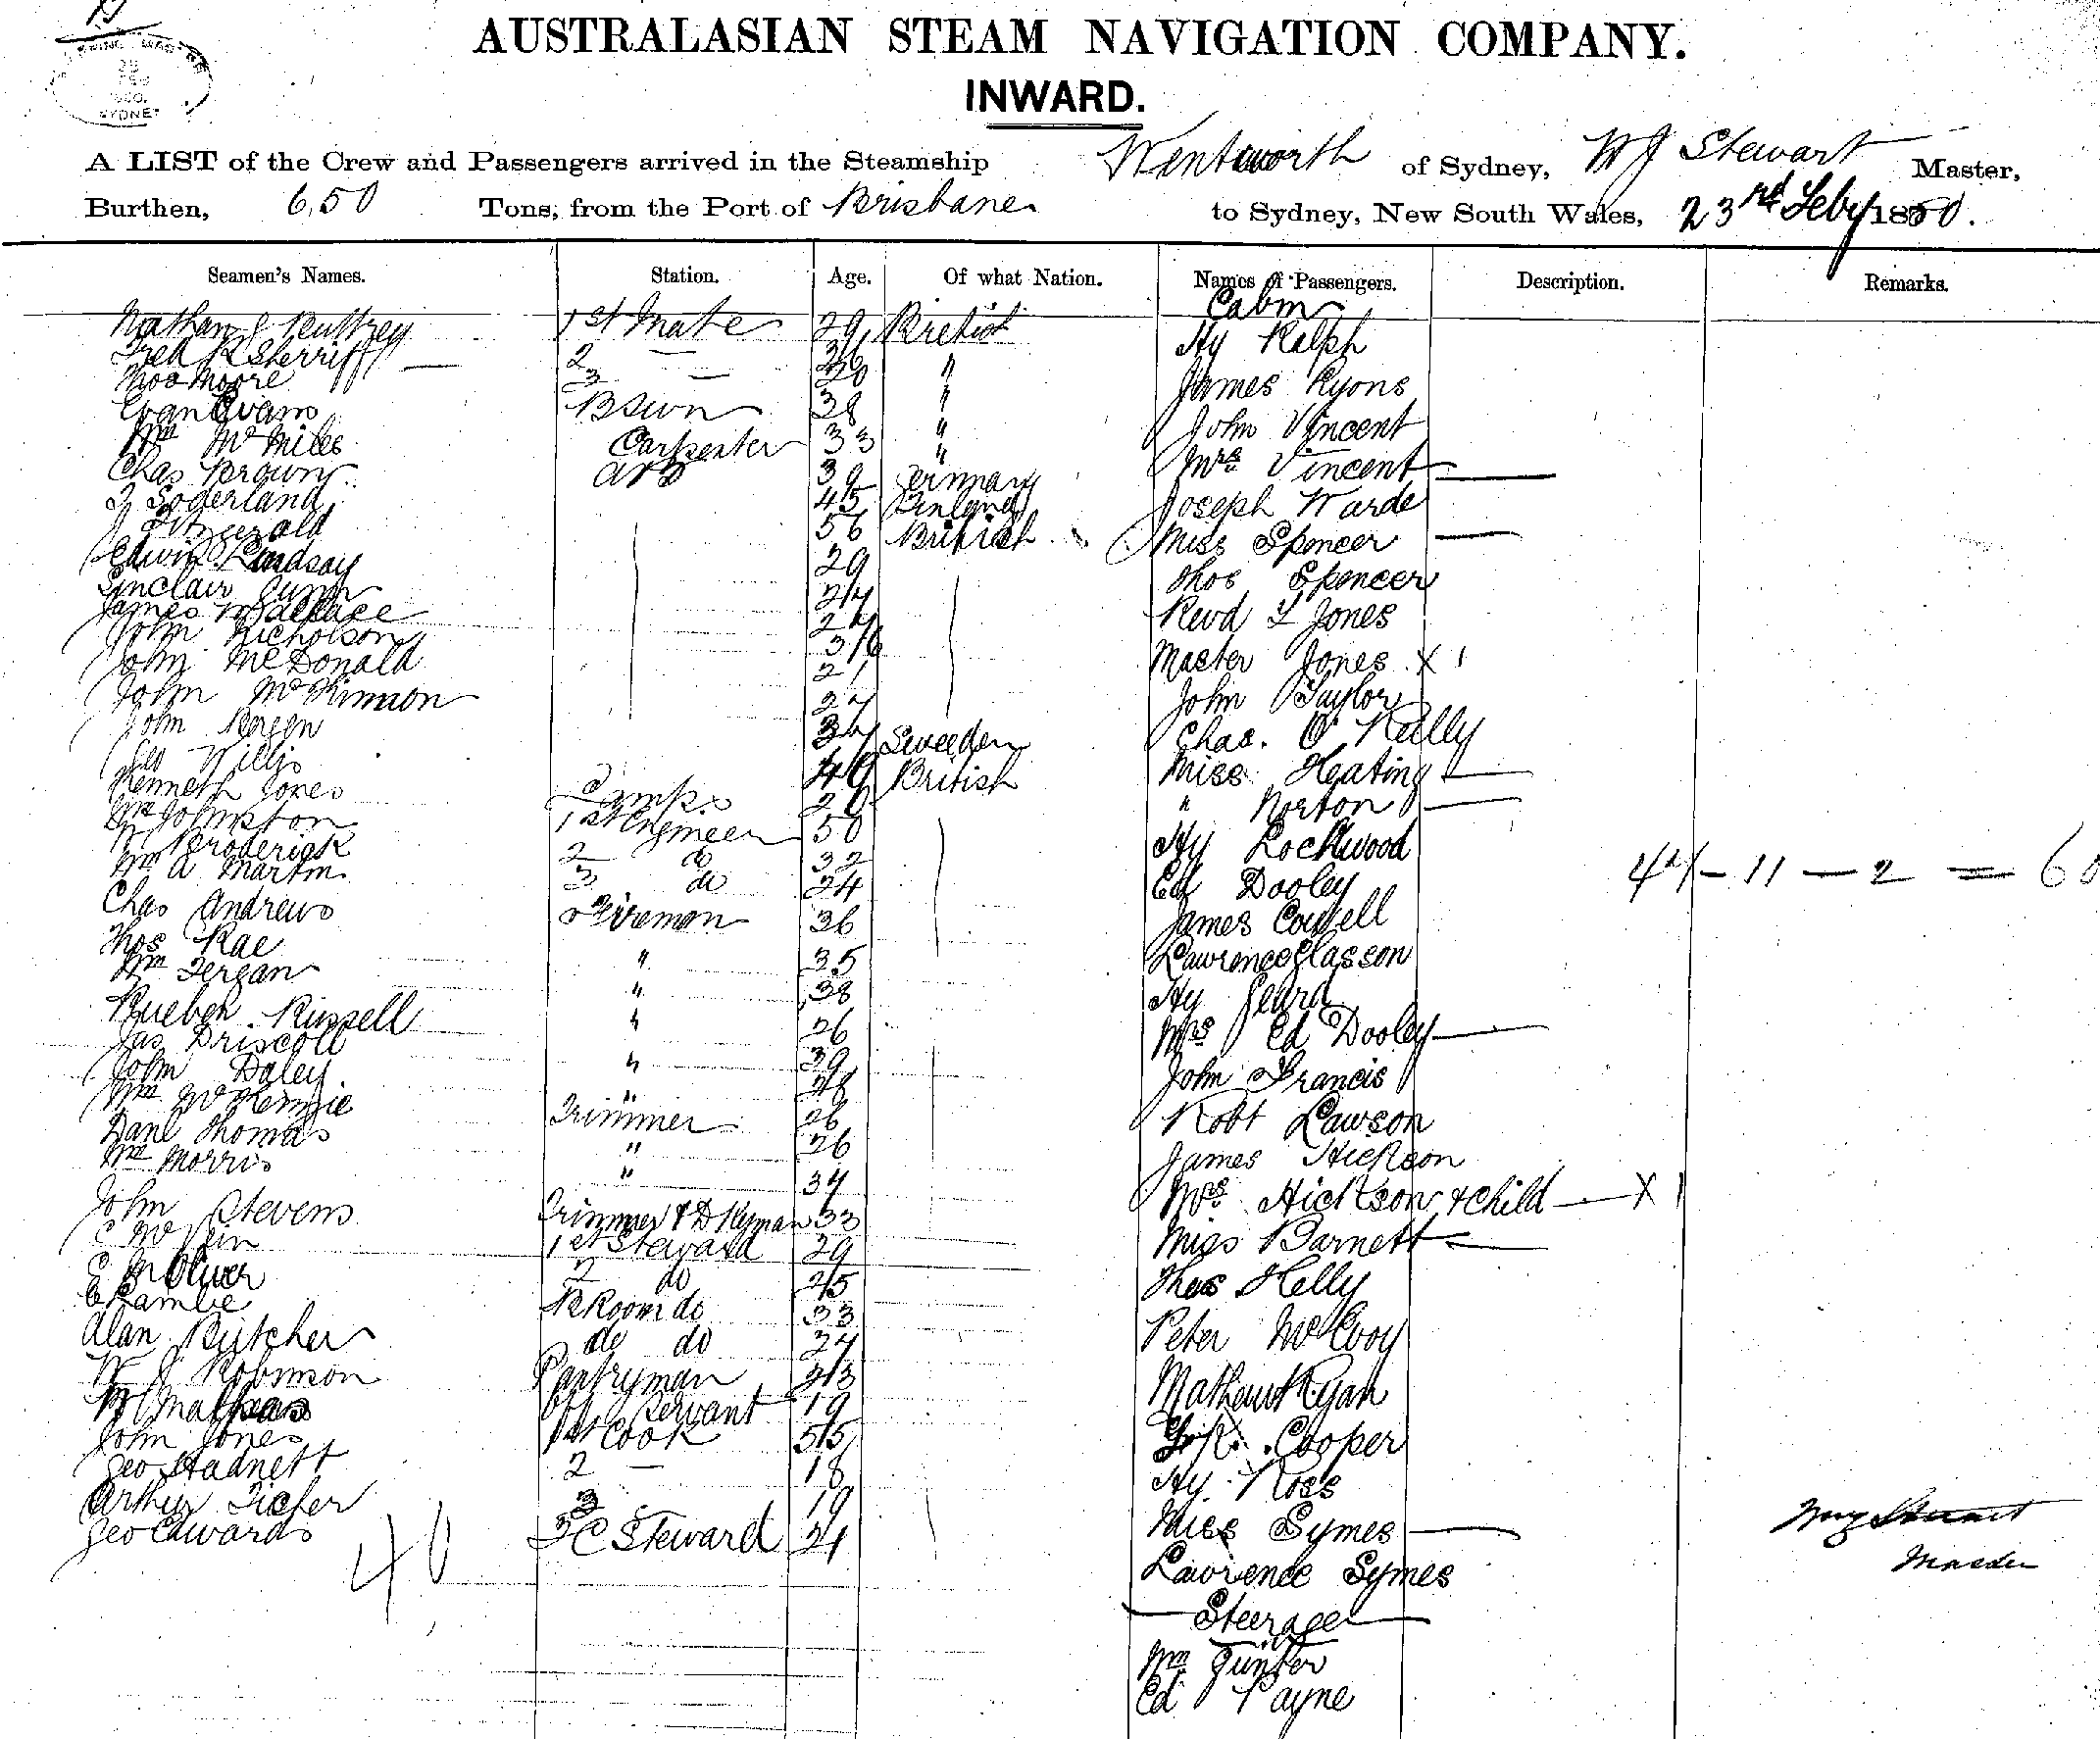 AUSTRALASIAN STEAM NAVIGATION COMPANY.
INWARD.
A LIST of the Crew and Passengers arrived in the Steamship Wentworth of Sydney, W J Stewart Master,
Burthen, 650 Tons, from the Port of Brisbane to Sydney, New South Wales, 23rd Feby 1880.
Seamen's Names. Station. Age. Of what Nation. Names of Passengers. Description. Remarks.
Cabin
Nathan J 1st Mate 29 British
Fred R Sherriff 2 —
Thos Moore 3 — 20 "
Evan Evans Bswn 38 "
Wm McMiles Carpenter 33 "
Chas Brown AB 39 Germany
Soderland 45 Finland
J Fitzgerald 56 British
Edwin Lindsay 29
Sinclair Gunn 24
James Wallace 24
John Nicholson 36
John McDonald 21
John McKinnon 27
John 34 Sweeden
Geo Willis 49 British
Kenneth Jones Lamps 20
Wm Johnston 1st Engineer 50
W Broderick 2 do 32
Wm A Martin 3 do 24
Chas Andrews Fireman 36
Thos Rae " 35
Wm " 38
Rueben Russell " 26
Jas Driscoll " 39
John Daley " 48
Wm McKenzie Trimmer 26
Danl Thomas " 26
Wm Morris " 34
John Stevens Trimmer & D Kyman 33
C 1st Steward 29
Oliver 2 do 25
E Lambe R Room do 33
Alan Butcher do do 24
W J Robinson Pantryman 23
M Servant 19
John Jones 1st Cook 55
Geo Hadnett 2 — 18
Arthur 3 19
Geo Edwards S C Steward 21
40
Hy Ralph
James Ryons
John Vincent
Mrs Vincent —
Joseph Warde
Miss Spencer —
Thos Spencer
Revd T Jones
Master Jones X 1
John Taylor
Chas. O'Kelly
Miss Heating —
" Norton —
Hy Lockwood
Ed Dooley
James Cowell
Lawrence Glasson
Hy Geard
Mrs Ed Dooley —
John Francis
Robt Lawson
James Hickson
Mrs Hickson & Child — X 1
Miss Barnett —
Thos Kelly
Peter McEvoy
Mathew Ryan
Cooper
Hy Ross
Miss Symes —
Lawrence Symes
— Steerage —
Wm Gunter
Ed Payne
44 — 11 — 2 = 60
Stewart
Master